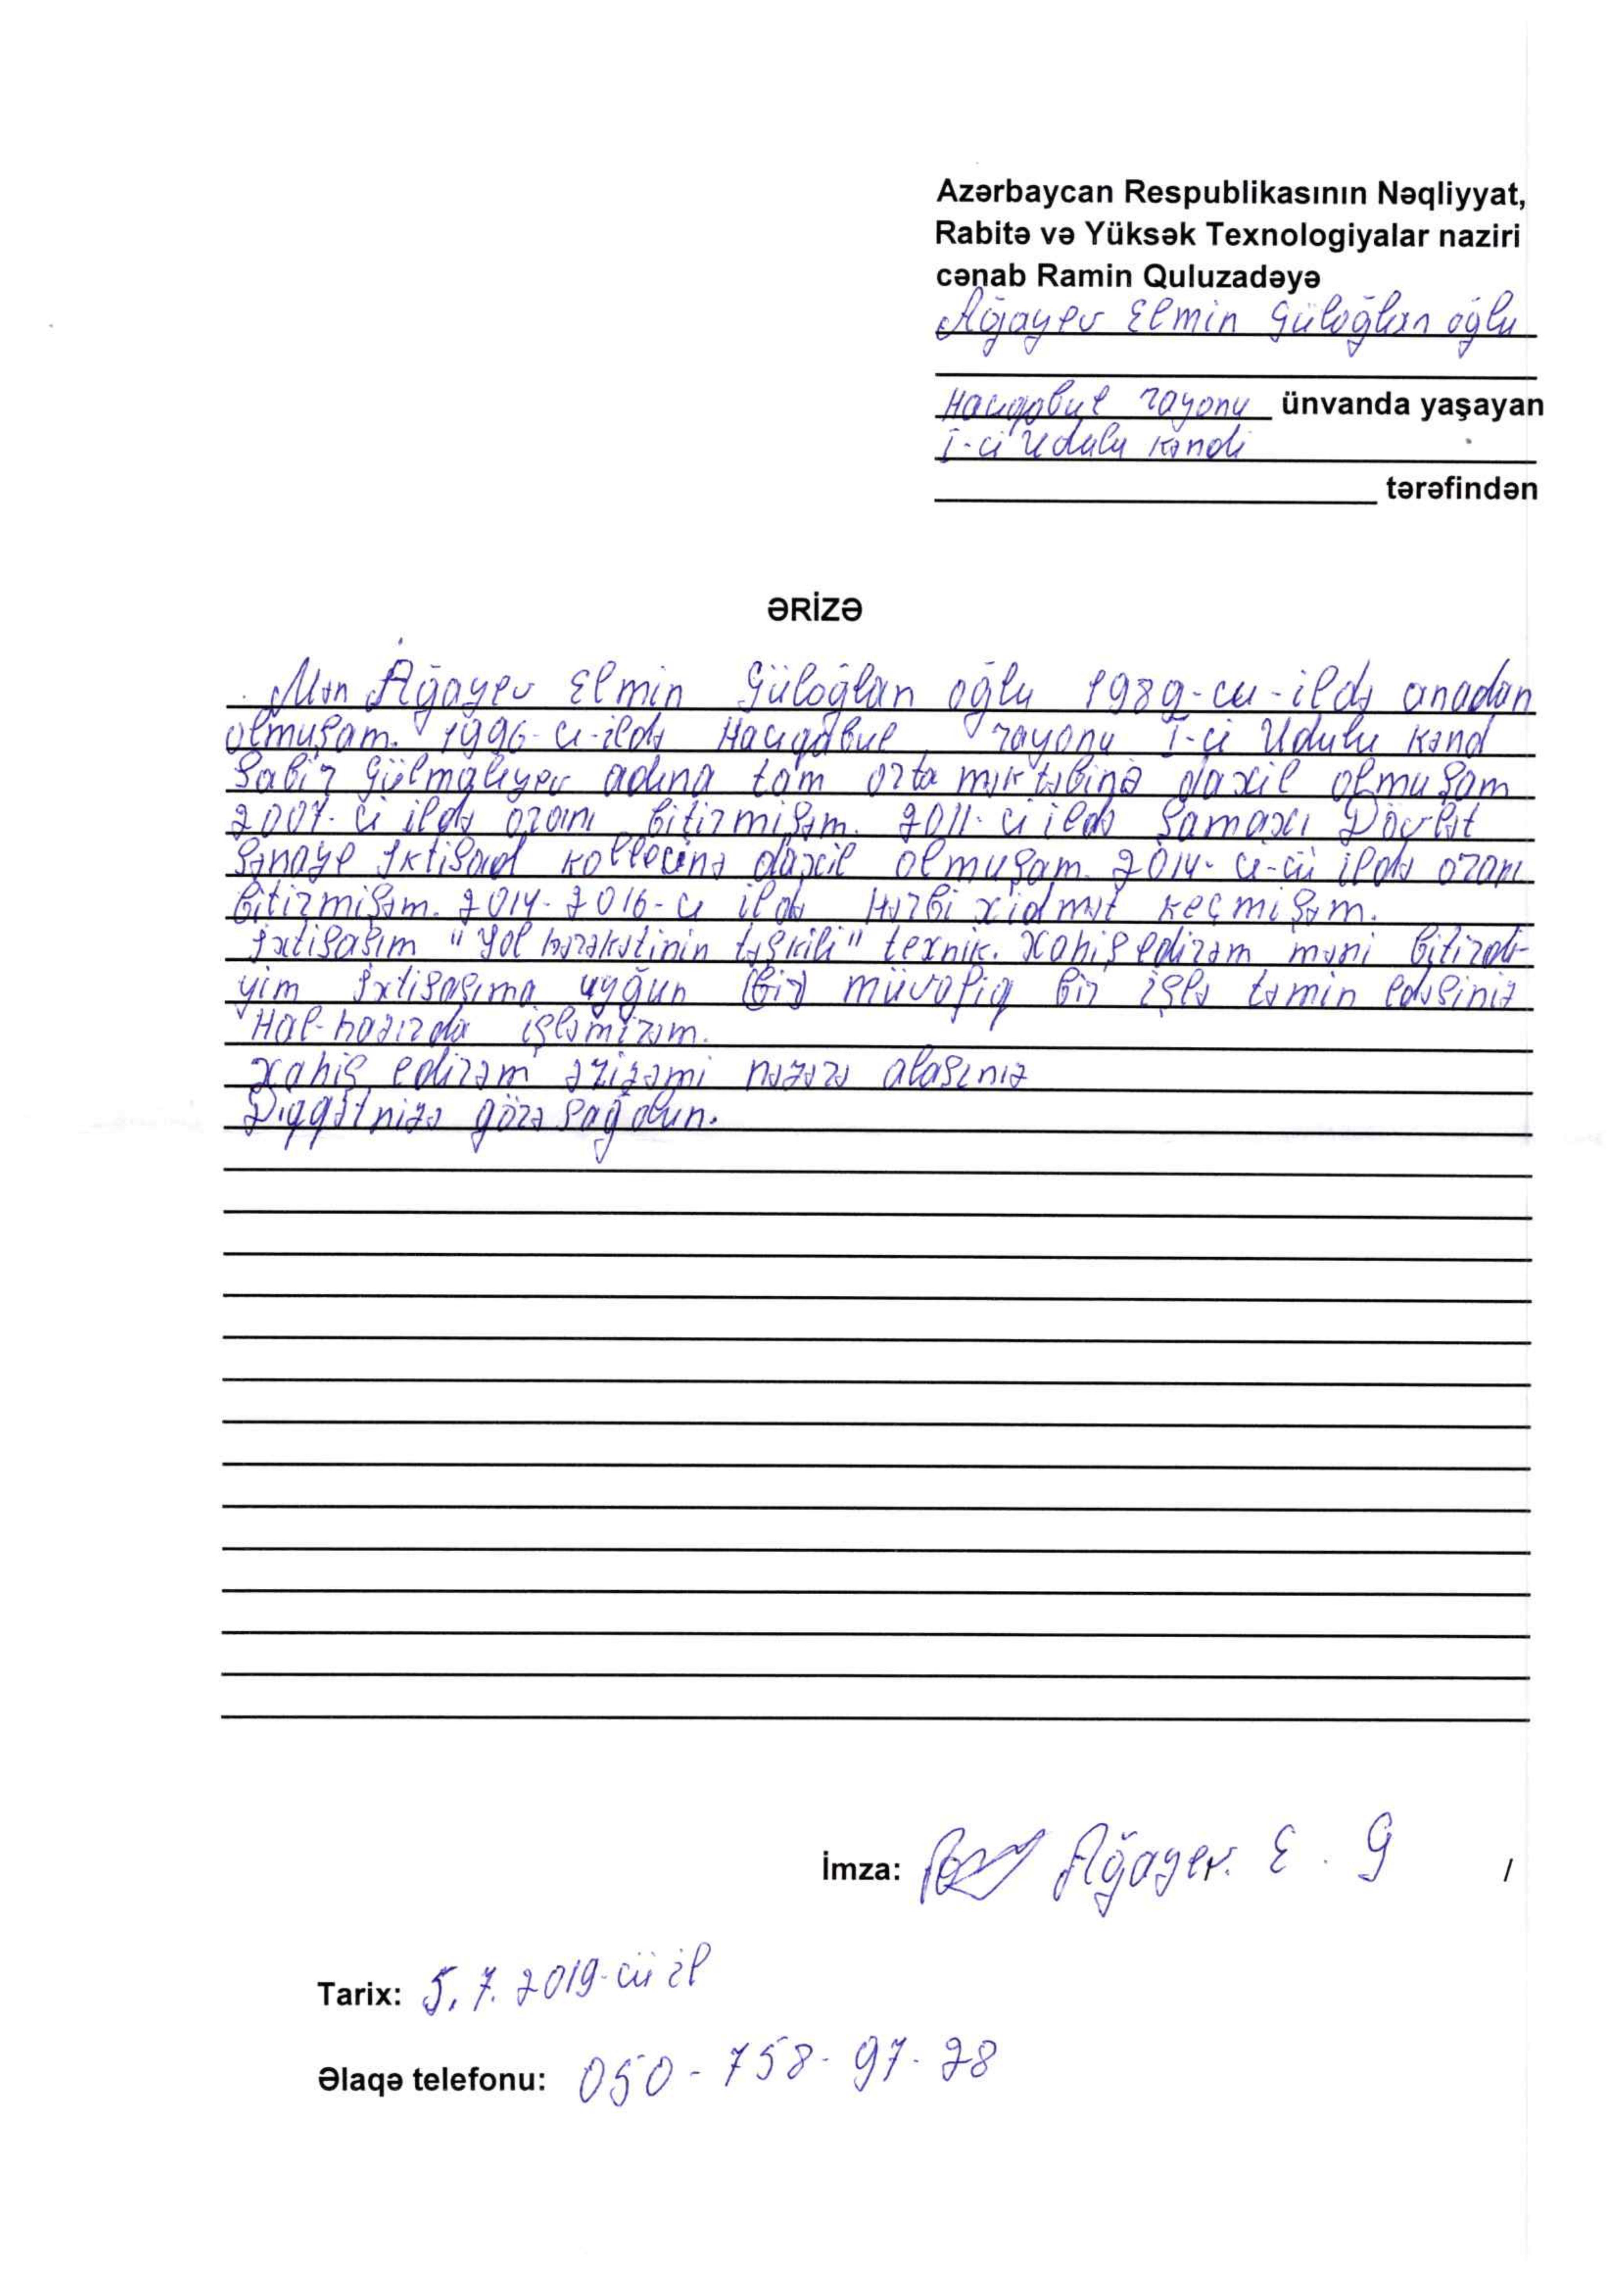 Azərbaycan Respublikasının Nəqliyyat,
Rabitə və Yüksək Texnologiyalar naziri
cənab Ramin Quluzadəyə
Ağayev Elmin Güloğlan oğlu
Hacıqabul rayonu ünvanda yaşayan
I-ci Udulu kəndi
tərəfindən
ƏRİZƏ
Mən Ağayev Elmin Güloğlan oğlu 1989-cu-ildə anadan
olmuşam. 1996-cı-ildə Hacıqabul rayonu I-ci Udulu kənd
Sabir Gülməlıyev adına tam orta məktəbinə daxil olmuşam
2007-ci ildə oranı bitirmişəm. 2011-ci ildə Şamaxı Dövlət
Sənaye İktisad kollecinə daxil olmuşam. 2014-cı-cü ildə oranı
bitirmişəm. 2014-2016-cı ildə Hərbi xidmət keçmişəm.
İxtisasım "Yol hərəkətinin təşkili" texnik. Xahiş edirəm məni bitirdi-
yim İxtisasıma uyğun (bir) müvafiq bir işlə təmin edəsiniz
Hal-hazırda işləmirəm.
Xahiş edirəm ərizəmi nəzərə alasınız
Diqqətnizə görə sağ olun.
İmza: Ağayev. E. G /
Tarix: 5.7.2019-cü il
Əlaqə telefonu: 050-758-97-28